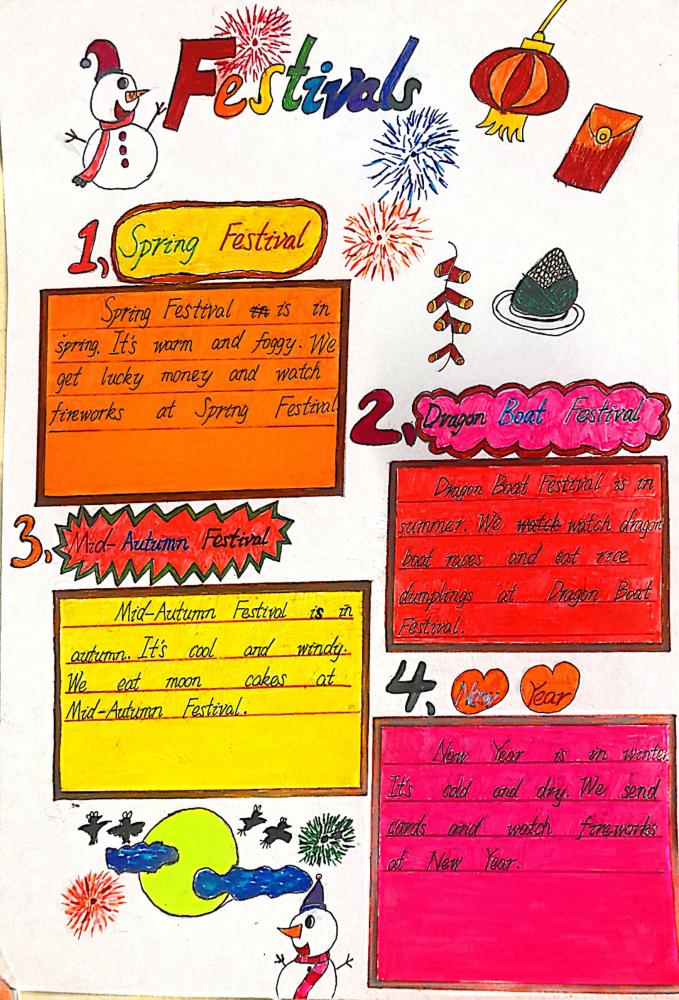 Festivals
1, Spring Festival
Spring Festival in is in
spring. It's warm and foggy. We
get lucky money and watch
fireworks at Spring Festival
2, Dragon Boat Festival
Dragon Boat Festival is in
summer. We watch watch dragon
boat races and eat rice
dumplings at Dragon Boat
Festival.
3, Mid-Autumn Festival
Mid-Autumn Festival is in
autumn. It's cool and windy.
We eat moon cakes at
Mid-Autumn Festival.
4, New Year
New Year is in winter.
It's cold and dry. We send
cards and watch fireworks
at New Year.